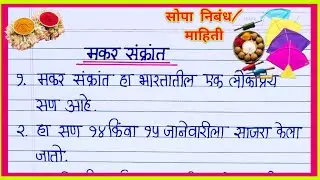 सोपा निबंध/
माहिती
मकर संक्रांत
१. मकर संक्रांत हा भारतातील एक लोकप्रिय
सण आहे.
२. हा सण १४ किंवा १५ जानेवारीला साजरा केला
जातो.